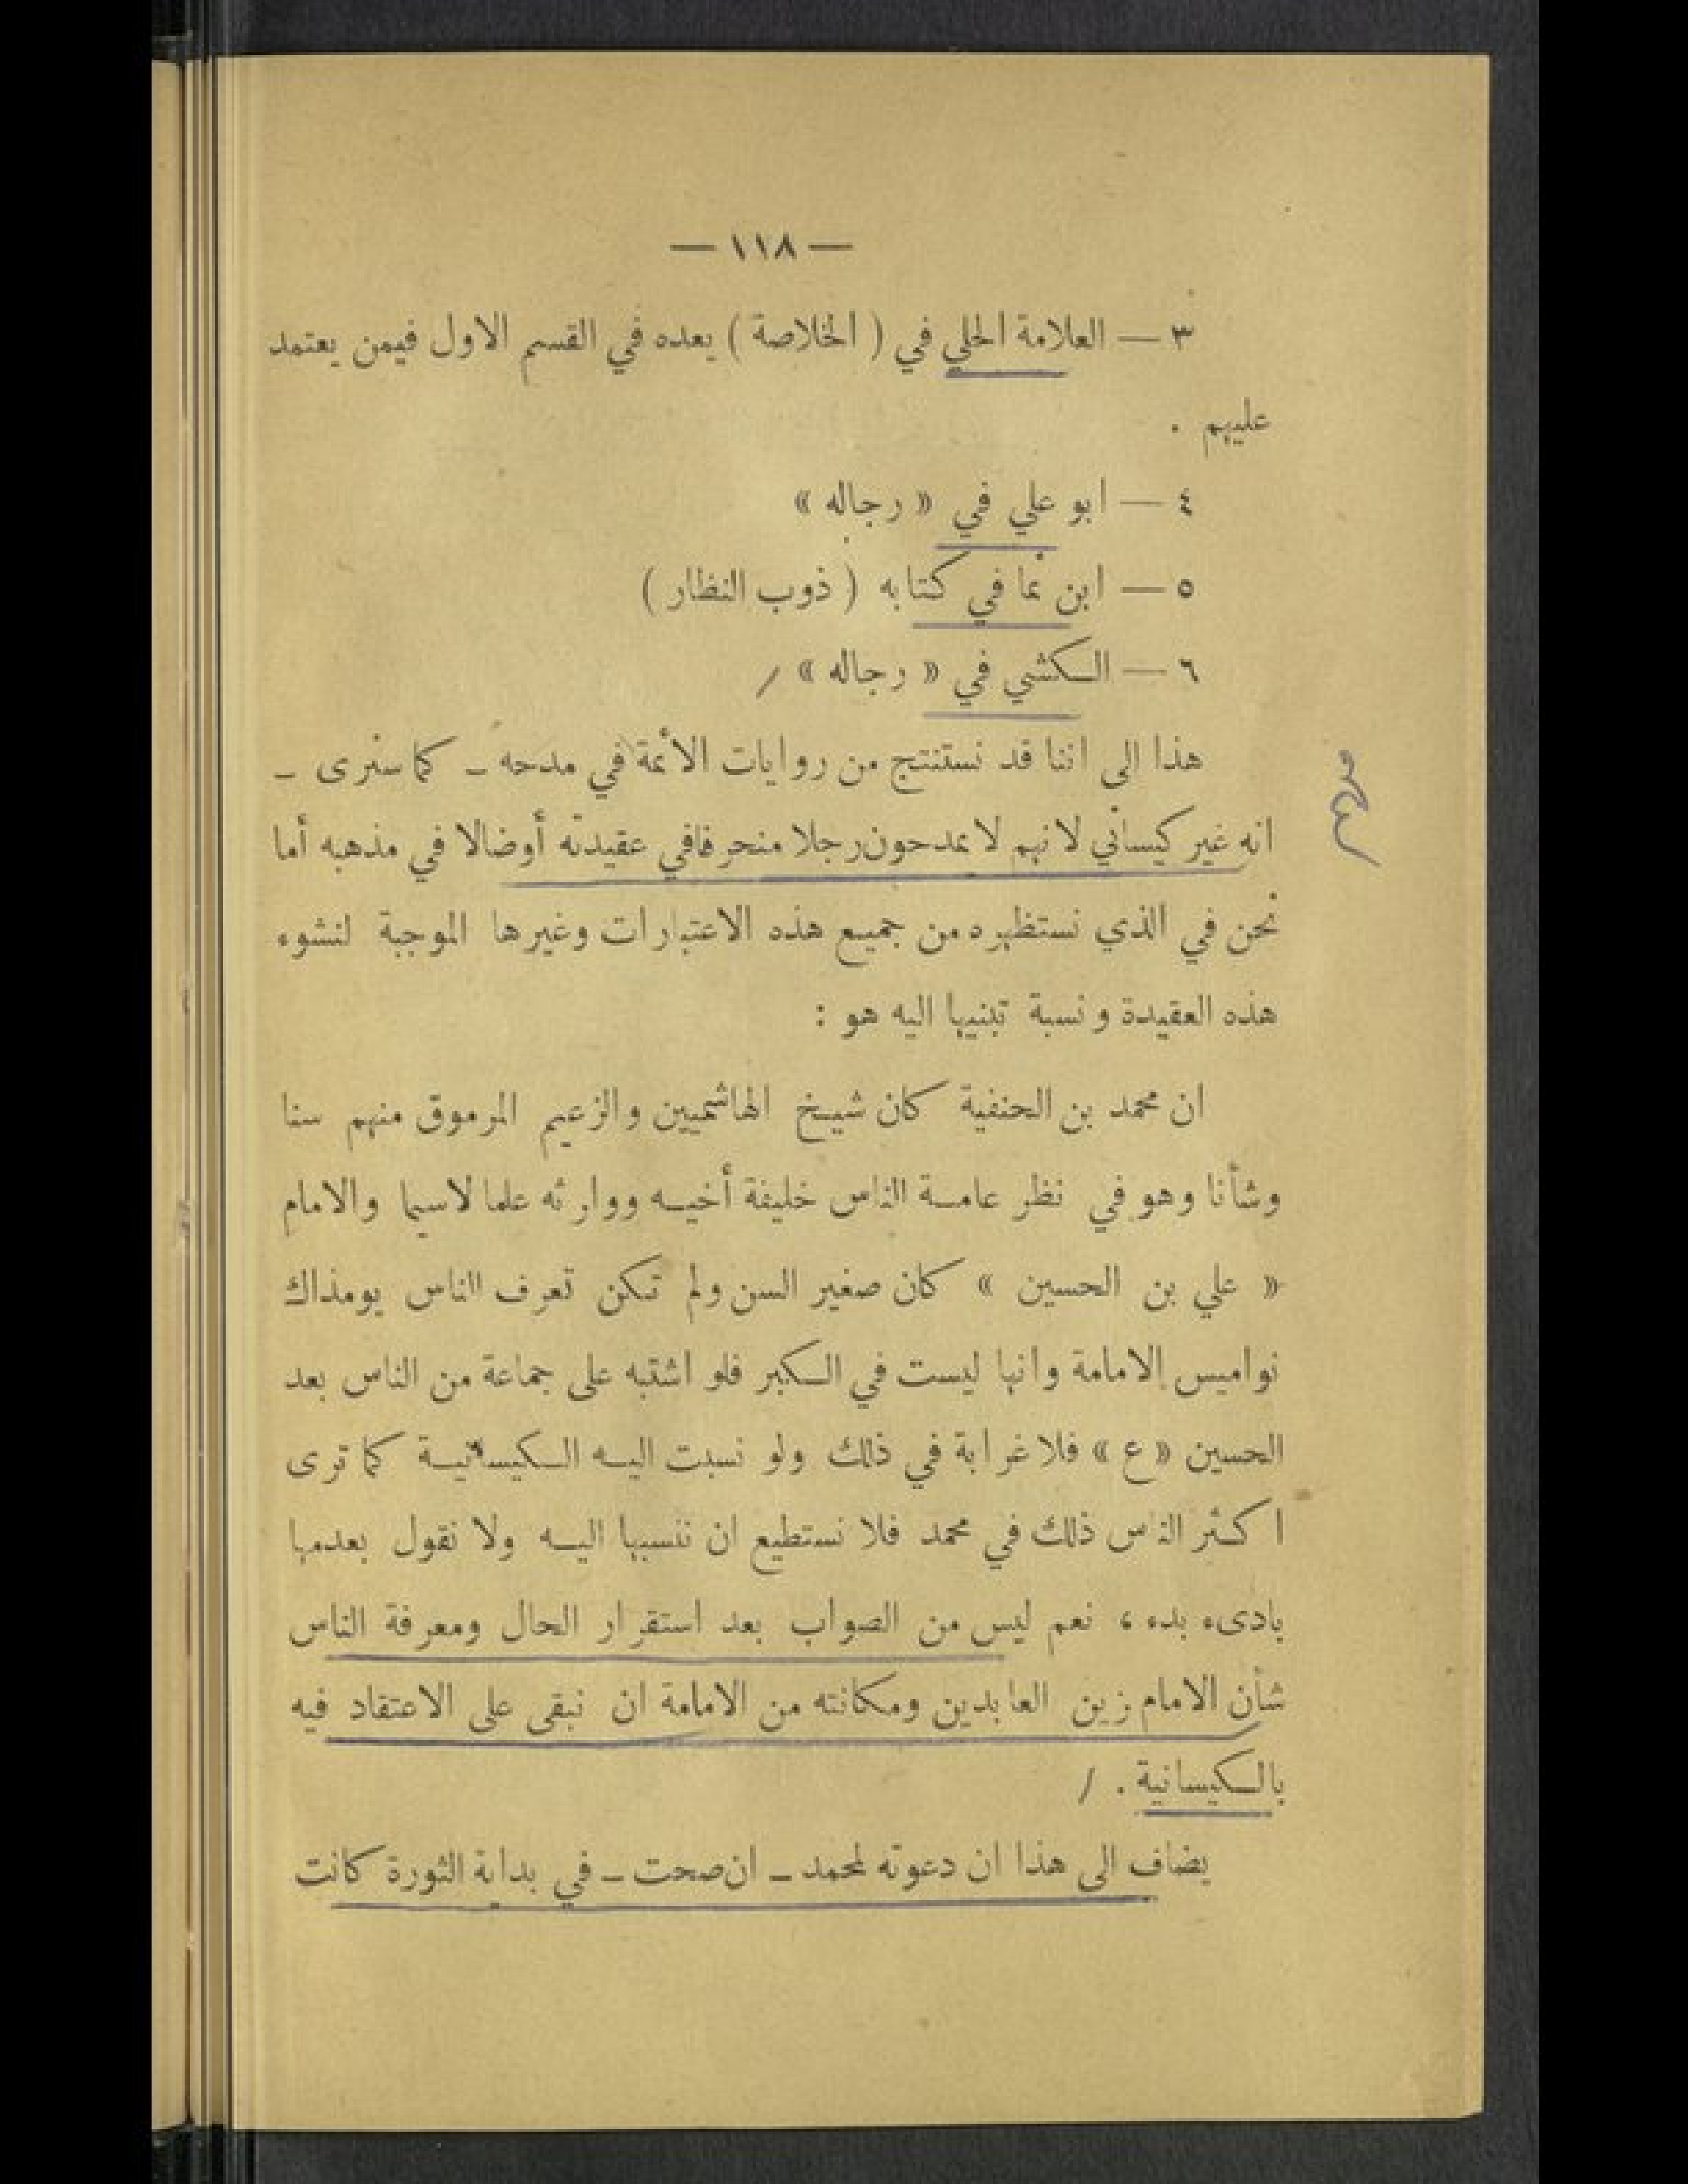 — ١١٨ —
٣ — العلامة الحلي في ( الخلاصة ) يعده في القسم الاول فيمن يعتمد
عليهم .
٤ — ابو علي في « رجاله »
٥ — ابن نما في كتابه ( ذوب النظار )
٦ — الكشي في « رجاله » /
هذا الى اننا قد نستنتج من روايات الأئمة في مدحه - كما سنرى -
انه غير كيساني لانهم لا يمدحون رجلا منحرفا في عقيدته أوضالا في مذهبه أما
نحن في الذي نستظهره من جميع هذه الاعتبارات وغيرها الموجبة لنشوء
هذه العقيدة ونسبة تبنيها اليه هو :
ان محمد بن الحنفية كان شيخ الهاشميين والزعيم المرموق منهم سنا
وشأنا وهو في نظر عامة الناس خليفة أخيه ووارثه علما لاسيما والامام
« علي بن الحسين » كان صغير السن ولم تكن تعرف الناس يومذاك
نواميس الامامة وانها ليست في الكبر فلو اشتبه على جماعة من الناس بعد
الحسين « ع » فلا غرابة في ذلك ولو نسبت اليه الكيسانية كما ترى
اكثر الناس ذلك في محمد فلا نستطيع ان ننسبها اليه ولا نقول بعدمها
بادىء بدء ، نعم ليس من الصواب بعد استقرار الحال ومعرفة الناس
شأن الامام زين العابدين ومكانته من الامامة ان نبقى على الاعتقاد فيه
بالكيسانية . /
يضاف الى هذا ان دعوته لمحمد - ان صحت - في بداية الثورة كانت